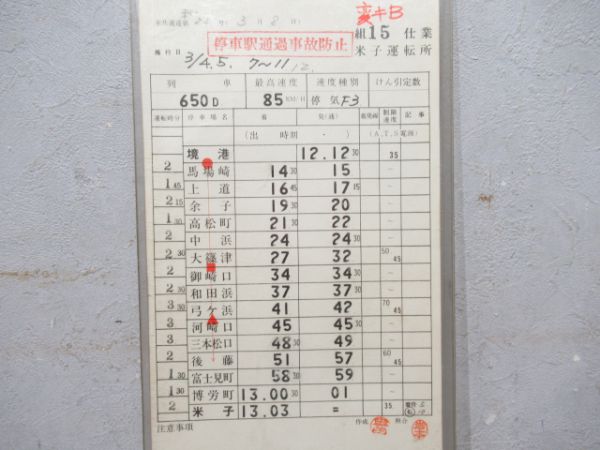 変キB
停車駅通過事故防止
組 15 仕業
米子運転所
施行日 3/4.5. 7~11 12.
列車 最高速度 速度種別 けん引定数
650D 85 KM/H 停気F3
運転時分 停車場名 着 発(通) 着発線 制限速度 記事
(出 時刻 ・ ) (A.T.S電源)
境港 12.12 30 35
2 馬場崎 14 30 15 –
1 45 上道 16 45 17 15 –
2 15 余子 19 30 20 –
1 30 高松町 21 30 22 –
2 中浜 24 24 30 –
2 30 大篠津 27 32 50 45
2 御崎口 34 34 30 –
2 30 和田浜 37 37 30 –
3 30 弓ヶ浜 41 42 70 45
3 河崎口 45 45 30 –
3 三本松口 48 30 49 –
2 後藤 51 57 60 45
1 30 富士見町 58 30 59 –
1 30 博労町 13.00 30 01 –
2 米子 13.03 = 35
注意事項 作成 照合